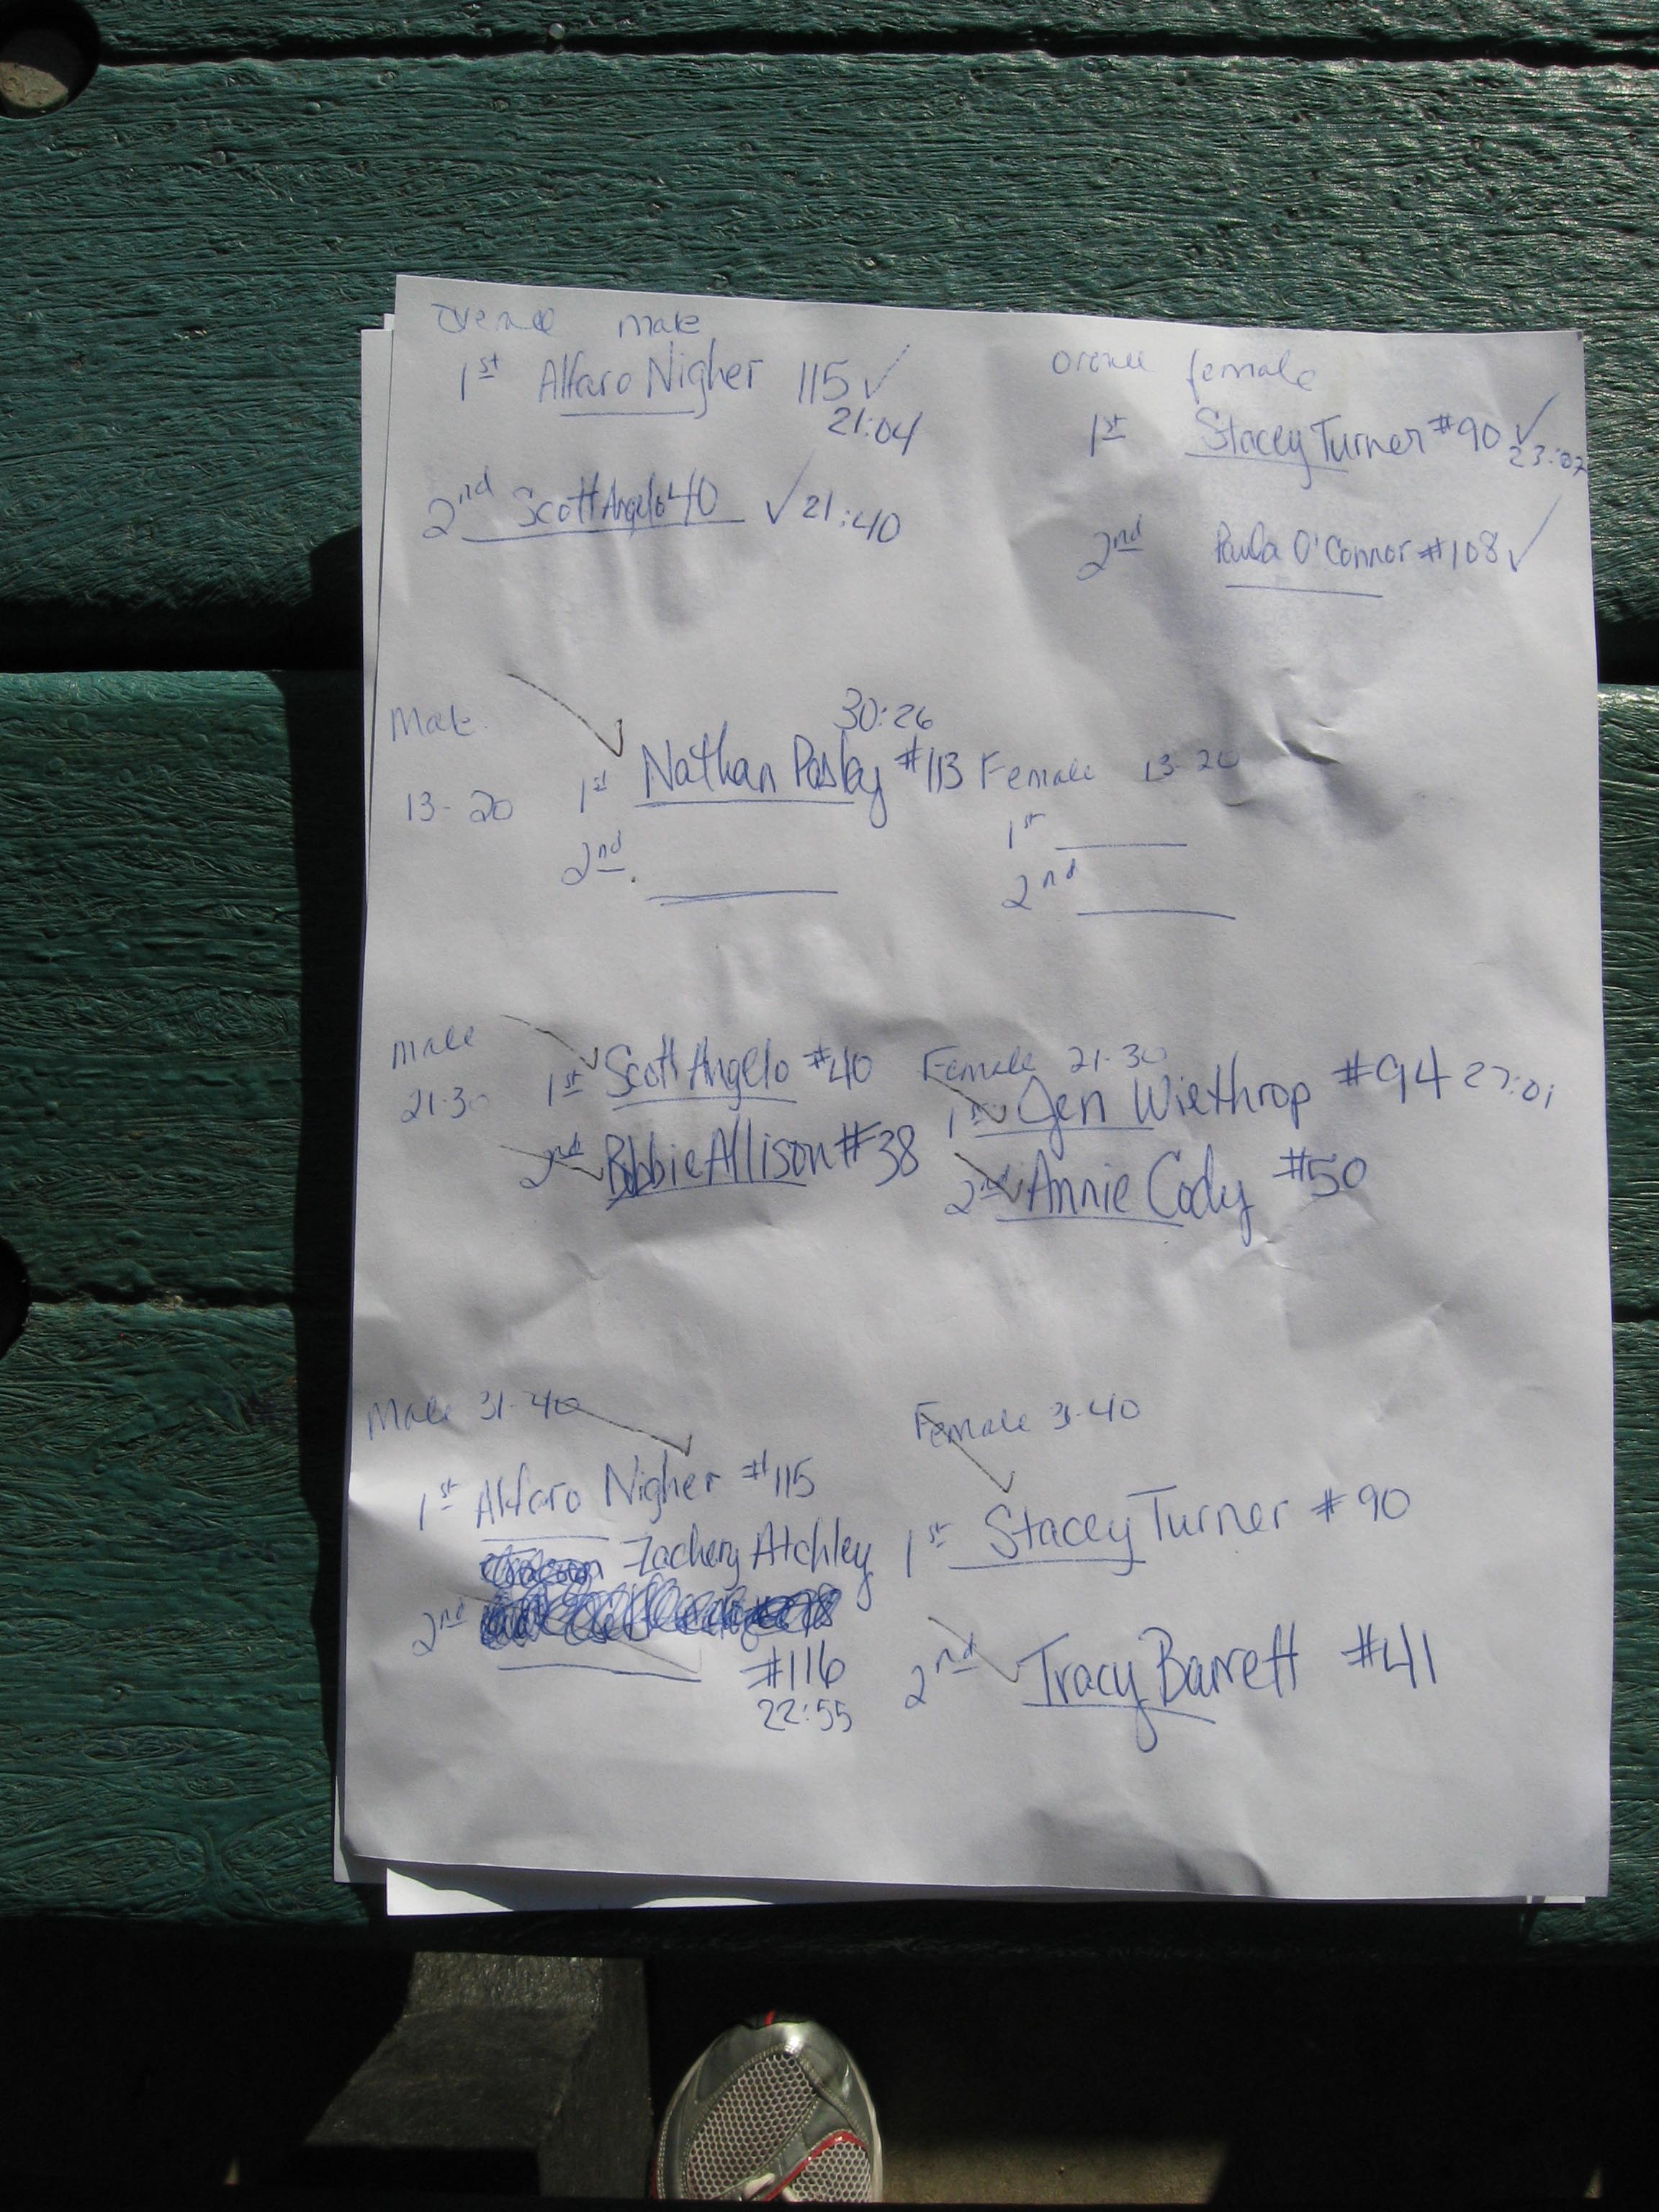 overall male
1st Alfaro Nigher 115 ✓
21:04
2nd Scott Angelo 40 ✓ 21:40
overall female
1st Stacey Turner #90 ✓
23:02
2nd Paula O'Connor #108 ✓
Male
13-20
30:26
1st Nathan Pasley #113
2nd
Female 13-20
1st
2nd
male
21-30
1st Scott Angelo #40
2nd Bobbie Allison #38
Female 21-30
1st Jen Wiethrop #94 27:01
2nd Annie Cody #50
Male 31-40
1st Alfaro Nigher #115
Zachery Atchley
2nd
#116
22:55
Female 31-40
1st Stacey Turner #90
2nd Tracy Barrett #41